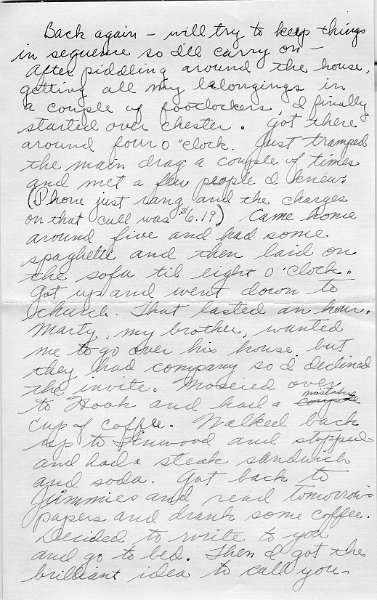 Back again - will try to keep things
in sequence so I'll carry on -
After piddling around the house,
getting all my belongings in
a couple of footlockers I finally
started over Chester. Got there
around four o'clock. Just tramped
the main drag a couple of times
and met a few people I knew.
(Phone just rang and the charges
on that call was $6.19) Came home
around five and had some
spaghetti and then laid on
the sofa til eight o'clock.
Got up and went down to
church. That lasted an hour.
Marty, my brother, wanted
me to go over his house but
they had company so I declined
the invite. Moseied over
to Hook and had a
cup of coffee. Walked back
up to Linwood and stopped
and had a steak sandwich
and soda. Got back to
Jimmies and read tomorrows
papers and drank some coffee.
Decided to write to you
and go to bed. Then I got the
brilliant idea to call you.